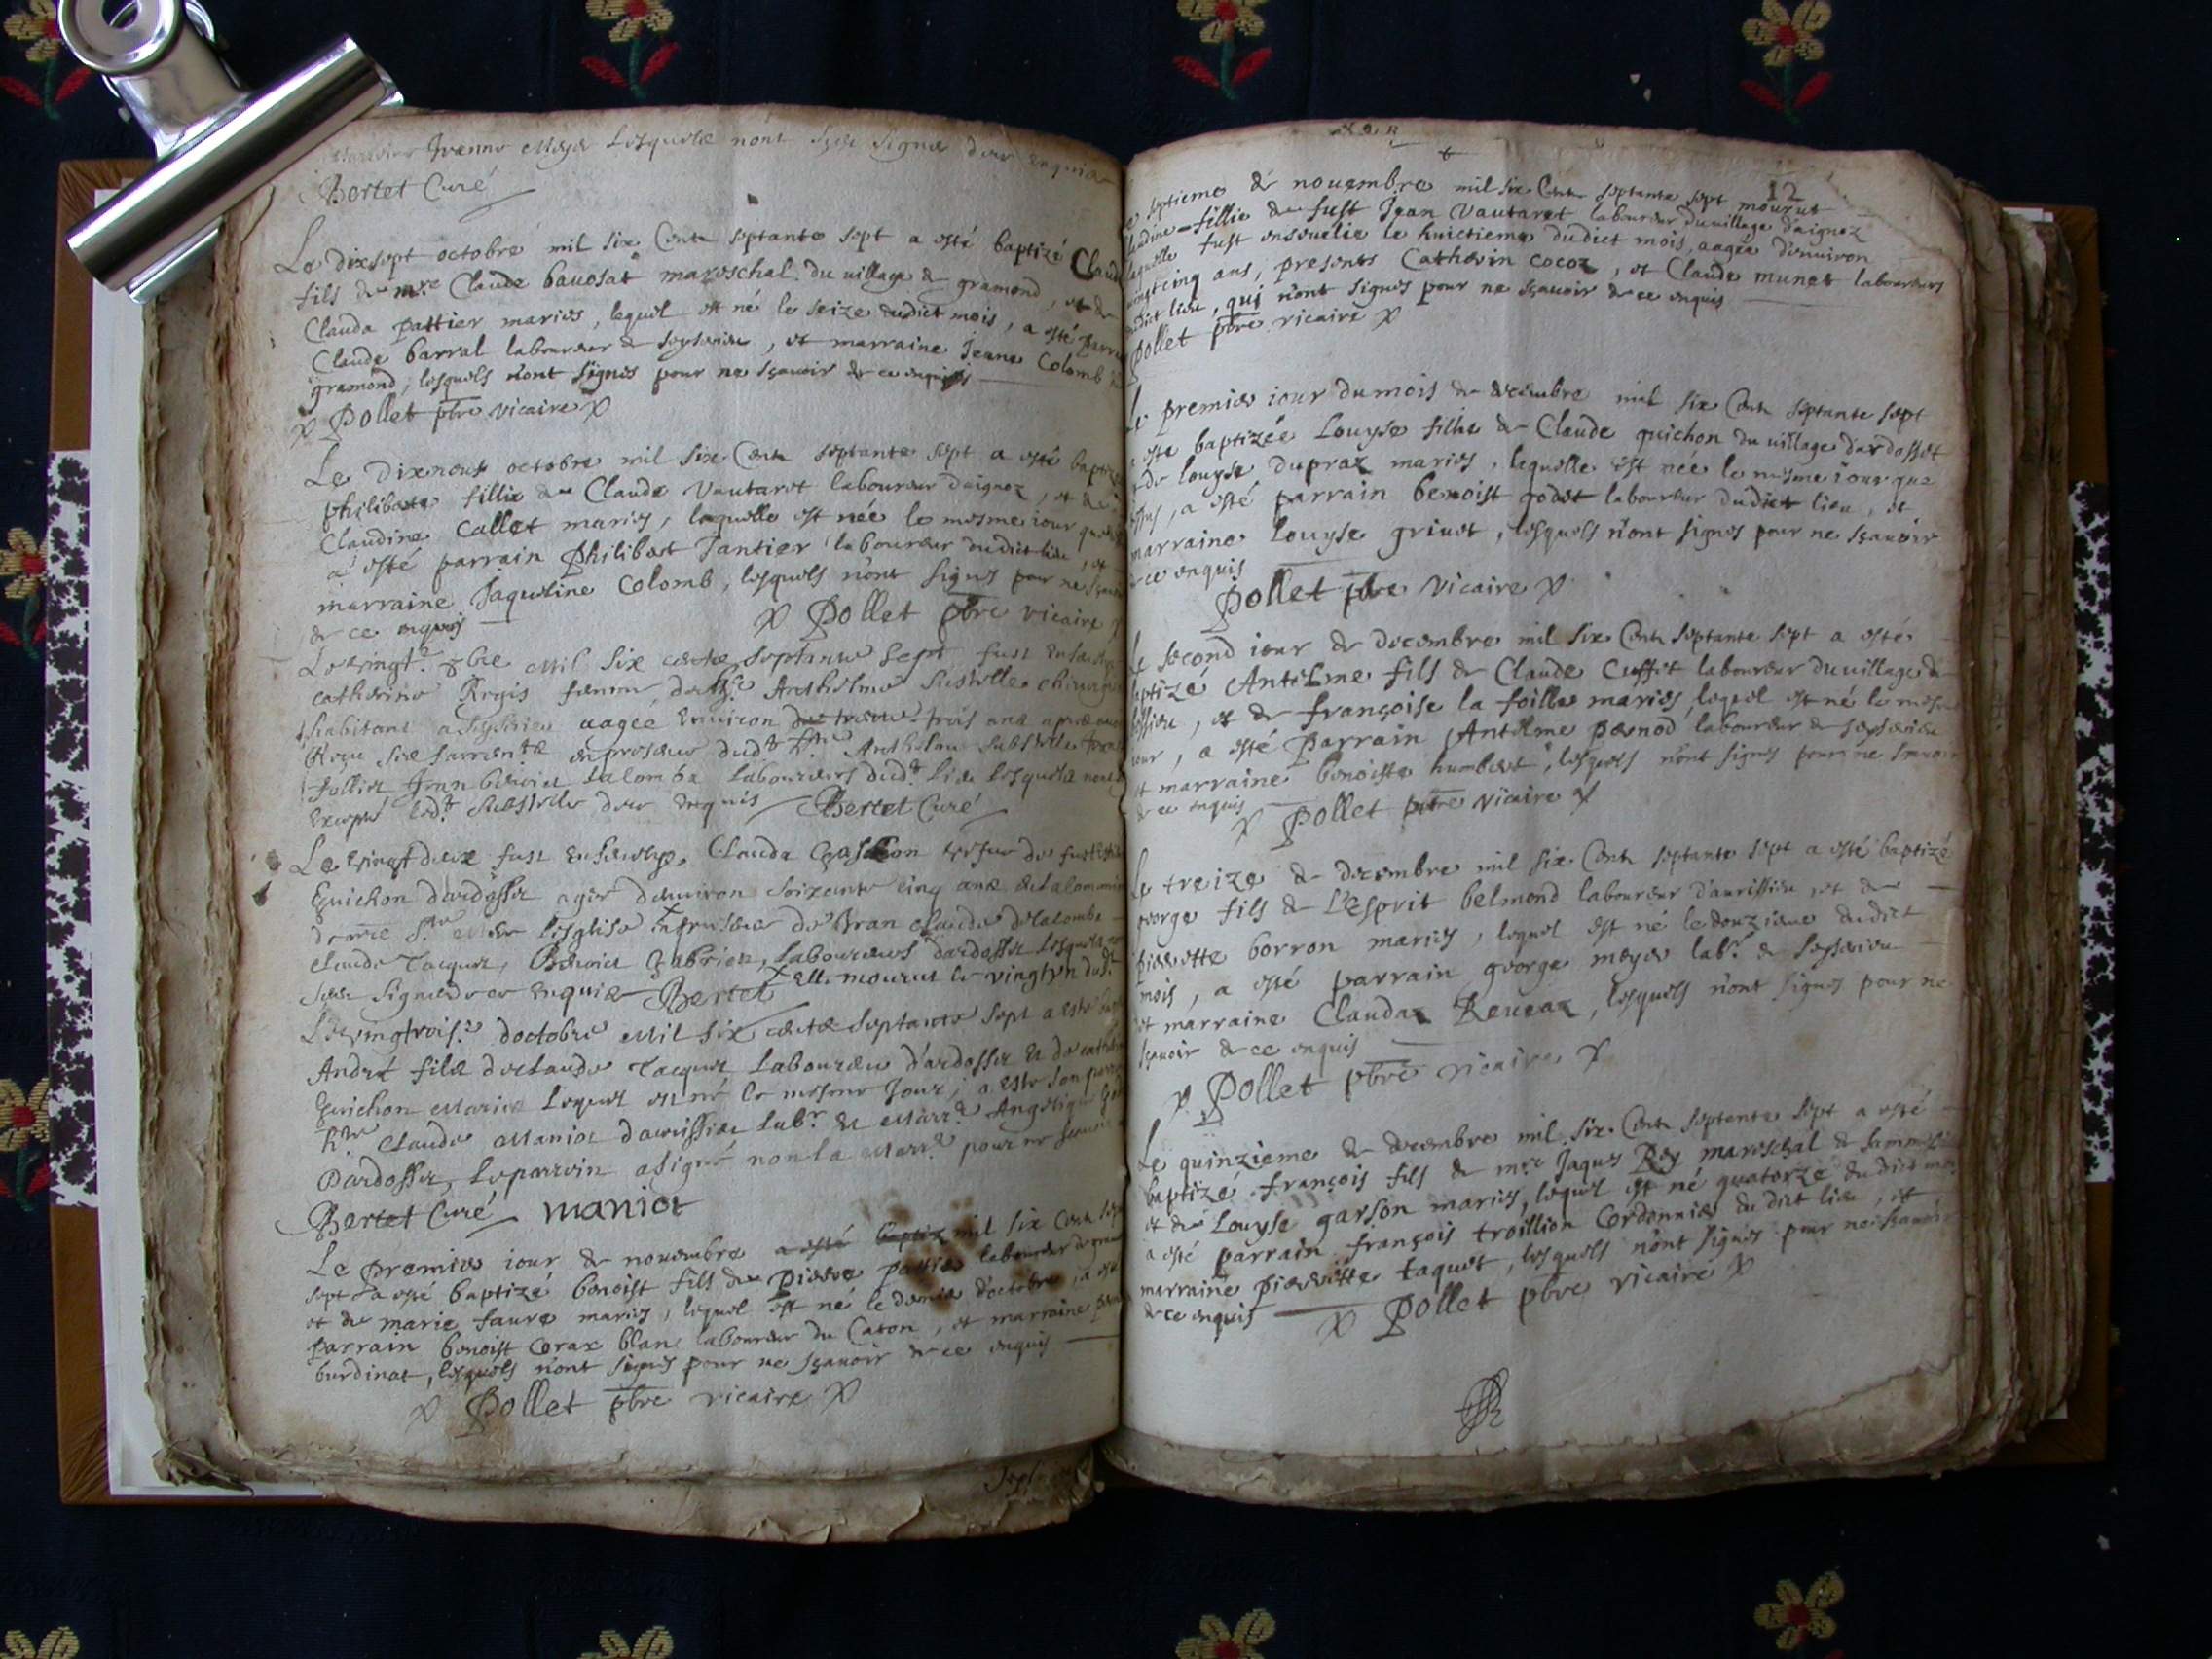 Jeanne Meyer Lesquelz nont sceu signer de ce enquis
Bertet Curé
Le dixsept octobre mil six Cents septante sept a esté baptizé Claud
fils de mre Claude bauosat mareschal du uillage de gramond, et de
Clauda pattier mariés, lequel est né le seize dudict mois, a esté parra
Claude barral laboureur de seyserieu, et marraine Jeane Colomb
gramond, lesquels n'ont signés pour ne sçauoir de ce enquis
Pollet pbre vicaire
Le dixneuf octobre mil six Cents septante sept a esté baptiz
philiberte fillie de Claude Vautaret laboureur daignoz, et de
Claudine Callet mariés, laquelle est née le mesme iour que
a esté parrain Philibert Jantier laboureur dudict lieu, et
marraine Jaqueline Colomb, lesquels n'ont signés pour ne sçauoir
de ce enquis
Pollet pbre vicaire
Le vingt.e 8bre Mil six cents septante sept fust enseuely
catherine Regis femme de Anthelme chirurgi
habitant a aagée enuiron trois ans apres auoir
Receu ses en presence dud.t Anthelme
Jean benoict Lalombe Laboureurs dud.t lieu Lesquelz nont
Excepté led.t de ce enquis Bertet Curé
Le vingtdeux fust enseuelye Clauda vefue de fust
Guichon dardosset agée denuiron soixante cinq ans
Leglise presence de Jean Claude delalombe
Claude Jacquet, Benoict Gabriel, Laboureurs dardosset Lesquelz
sceu signer de ce enquis Bertet x elle mourut le vingtvn dud.t
Le vingtrois.e doctobre Mil six cents septante sept a esté
André filz de Claude Jacquet Laboureur d'ardosset et de cathe
Guichon Mariez Lequel est né le mesme Jour, a esté son parr
h.te Claude Maniot daurissieu lab.r et Marr.e Angelique
Dardosset, Leparrein a signé non la Marr.e pour ne sçauoir
Bertet Curé maniot
Le premier iour de nouembre a esté baptiz mil six Cents sep
sept a esté baptizé benoist fils de pierre pattier laboureur de gram
et de marie faure mariés, lequel est né le dernier d'octobre, a esté
parrain benoist Corax blanc laboureur du Caton, et marraine
burdinat, lesquels n'ont signés pour ne sçauoir de ce enquis
Pollet pbre vicaire
12
septieme de nouembre mil six Cents septante sept mourut
laudine fillie de fust Jean Vautaret laboureur du uillage d'aignoz
laquelle fust enseuelie le huictieme dudict mois, aagée d'enuiron
vingtcinq ans, presents Catherin Cocoz, et Claude munet laboureurs
dudict lieu, qui n'ont signés pour ne sçauoir de ce enquis
Pollet pbre vicaire
Le premier iour dumois de decembre mil six Cents septante sept
a esté baptizée Louyse fillie de Claude guichon du uillage d'ardosset
et de louyse dupraz mariés, laquelle est née le mesme iour que
dessus, a esté parrain benoist godet laboureur dudict lieu, et
marraine Louyse griuet, lesquels n'ont signés pour ne sçauoir
de ce enquis
Pollet pbre vicaire
Le second iour de decembre mil six Cents septante sept a esté
baptizé Antelme fils de Claude Cuffet laboureur du uillage d
, et de françoise la foille mariés, lequel est né le mes
iour, a esté Parrain Antelme pernod laboureur de seyserieu
et marraine benoiste humbert, lesquels n'ont signés pour ne sçauoir
de ce enquis
Pollet pbre vicaire
Le treize de decembre mil six Cents septante sept a esté baptizé
george fils de L'Esprit belmond laboureur d'aurissieu, et de
pierrette borron mariés, lequel est né le douzieme dudict
mois, a esté parrain george meyer lab.r de seyserieu
et marraine Claudaz Reueaz, lesquels n'ont signés pour ne
sçauoir de ce enquis
Pollet pbre vicaire
Le quinzieme de decembre mil six Cents septante sept a esté
baptizé françois fils de mre Jaques Rey mareschal de
et de Louyse garson mariés, lequel est né quatorze du dict mois
a esté parrain françois troillion Cordonnier du dict lieu, et
marraine pierrette taquet, lesquels n'ont signés pour ne sçauoir
de ce enquis
Pollet pbre vicaire